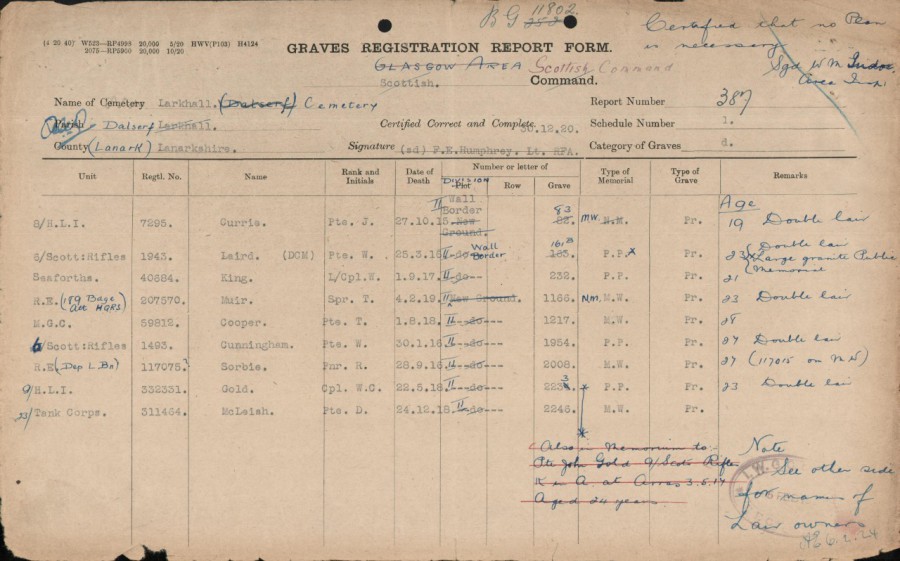 B G 11802.
353
Certified that no Plan
is necessary
Sgd W M Tudor
Area Insp.
(4 20 40) W523—RP4998 20,000 5/20 HWV(P103) H4124
2075—RP5900 20,000 10/20
GRAVES REGISTRATION REPORT FORM.
GLASGOW AREA Scottish Command
Scottish. Command.
Name of Cemetery Larkhall, (Dalserf) Cemetery
Report Number 387
Parish Dalserf Larkhall.
Certified Correct and Complete 30.12.20.
Schedule Number 1.
County (Lanark) Lanarkshire.
Signature (sd) F.E.Humphrey. Lt. RFA.
Category of Graves d.
Unit Regtl. No. Name Rank and Initials Date of Death Number or letter of Division Plot Row Grave Type of Memorial Type of Grave Remarks
Age
8/H.L.I. 7295. Currie. Pte. J. 27.10.15. II Wall Border New Ground. 82. 83 MW. N.M. Pr. 19 Double lair
5/Scott:Rifles 1943. Laird. (DCM) Pte. W. 25.3.16 II -do- Wall Border 163. 161B P.P.x Pr. 23 x Double lair Large granite Public Memorial
Seaforths. 40684. King. L/Cpl.W. 1.9.17 II -do--- 232. P.P. Pr. 21
R.E. (189 Base Att HQRS) 207570. Muir. Spr. T. 4.2.19. II New Ground. 1165. N.M. M.W. Pr. 23 Double lair
M.G.C. 59812. Cooper. Pte. T. 1.8.18. II -do--- 1217. M.W. Pr. 28
6/Scott:Rifles 1493. Cunningham. Pte. W. 30.1.16 II -do--- 1954. P.P. Pr. 27 Double lair
R.E (Dep L. Bn) 117075. Sorbie. Pnr. R. 28.9.16 II -do--- 2008. M.W. Pr. 27 (117015 on M W)
9/H.L.I. 332331. Gold. Cpl. W.C. 22.5.18. II -do--- 2233 P.P. Pr. 23 Double lair
23/Tank Corps. 311464. McLeish. Pte. D. 24.12.18. II -do--- 2246. M.W. Pr.
Also in Memoriam to:-
Pte John Gold 9/Scots Rifles
K in A. at Arras 3.5.17
Aged 24 years
Note
See other side
for names of
Lair owners
I.W.G.
6.2.24